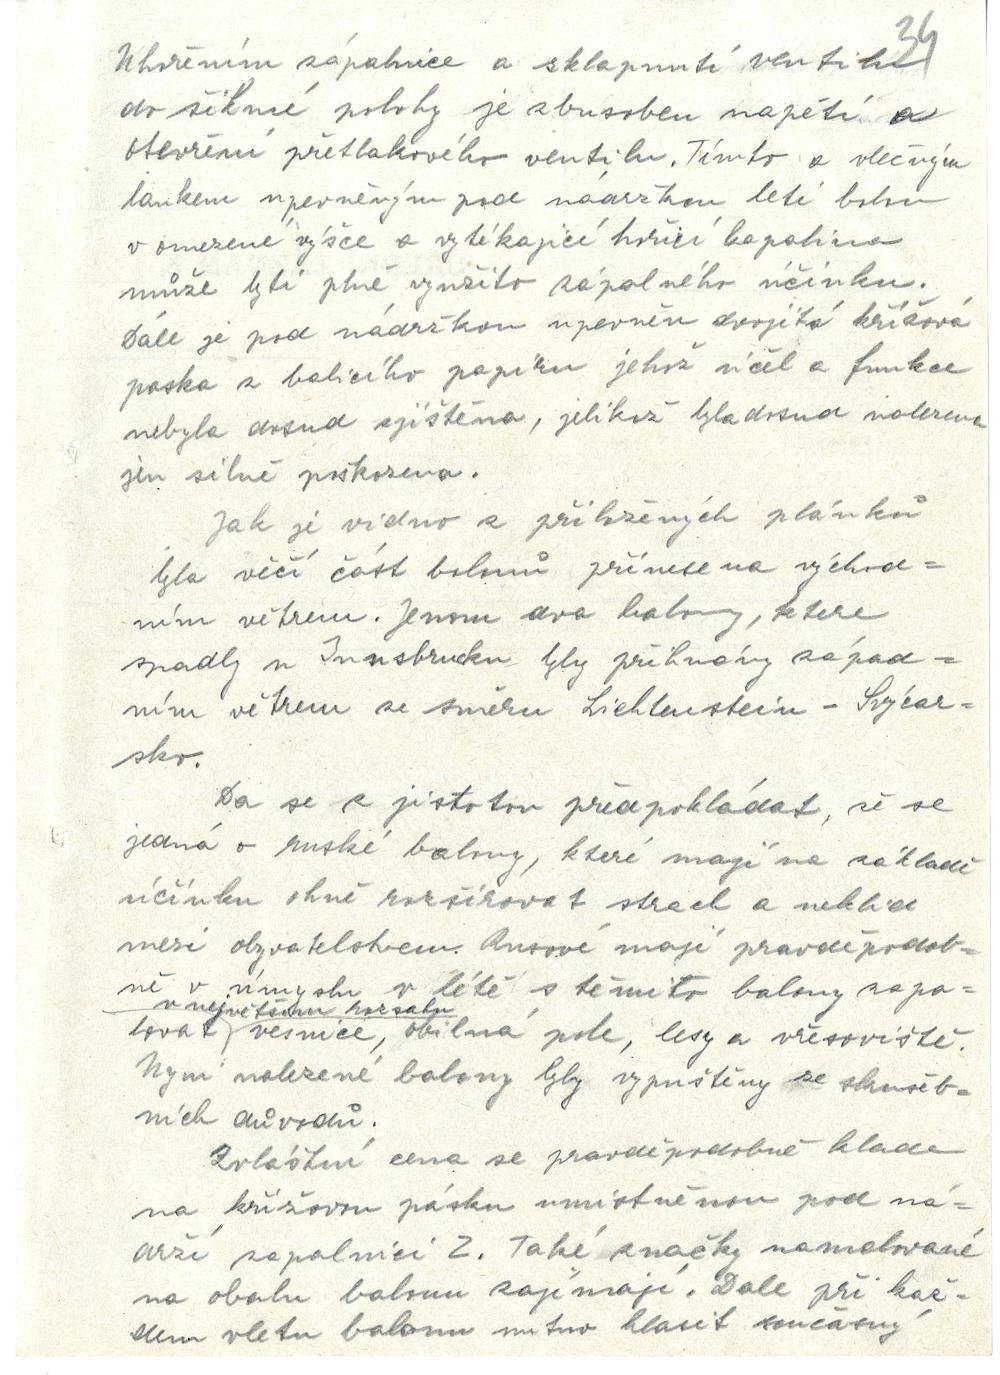 34
Uhořením zápalnice a sklapnutí ventilu
do šikmé polohy je zbusoben napětí a
otevření přetlakového ventilu. Tímto a vlečným
lankem upevněným pod nádržkou letí balon
v omezené výšce a vytékající hořící kapalina
může býti plně využito zápalného účinku.
Dále je pod nádržkou upevněn dvojitá křížová
paska z balicího papíru jehož účel a funkce
nebyla dosud zjištěna, jelikož byla dosud nalezena
jen silně poškozena.
Jak je vidno z přiložených plánků
byla věčí část balonů přinesena východ=
ním větrem. Jenom dva balony, ktere
spadly u Innsbrucku byly přihnány západ=
ním větrem ze směru Lichtenstein - Švýcar=
sko.
Da se z jistotou předpokládat, že se
jedná o ruské balony, které mají na základě
účinku ohně rozšiřovat strach a neklid
mezi obyvatelstvem. Rusové mají pravděpodob=
ně v úmyslu v létě s těmito balony zapa=
v největším rozsahu
lovat vesnice, obilná pole, lesy a vřesoviště.
Nyní nalezené balony byly vypuštěny ze zkušeb=
ních důvodů.
Zvláštní cena se pravděpodobně klade
na křížovou pásku umístněnou pod ná=
drží zapalnici 2. Také značky namalované
na obalu balonu zajímají. Dale při kaž=
dem vletu balonu nutno hlasit současný